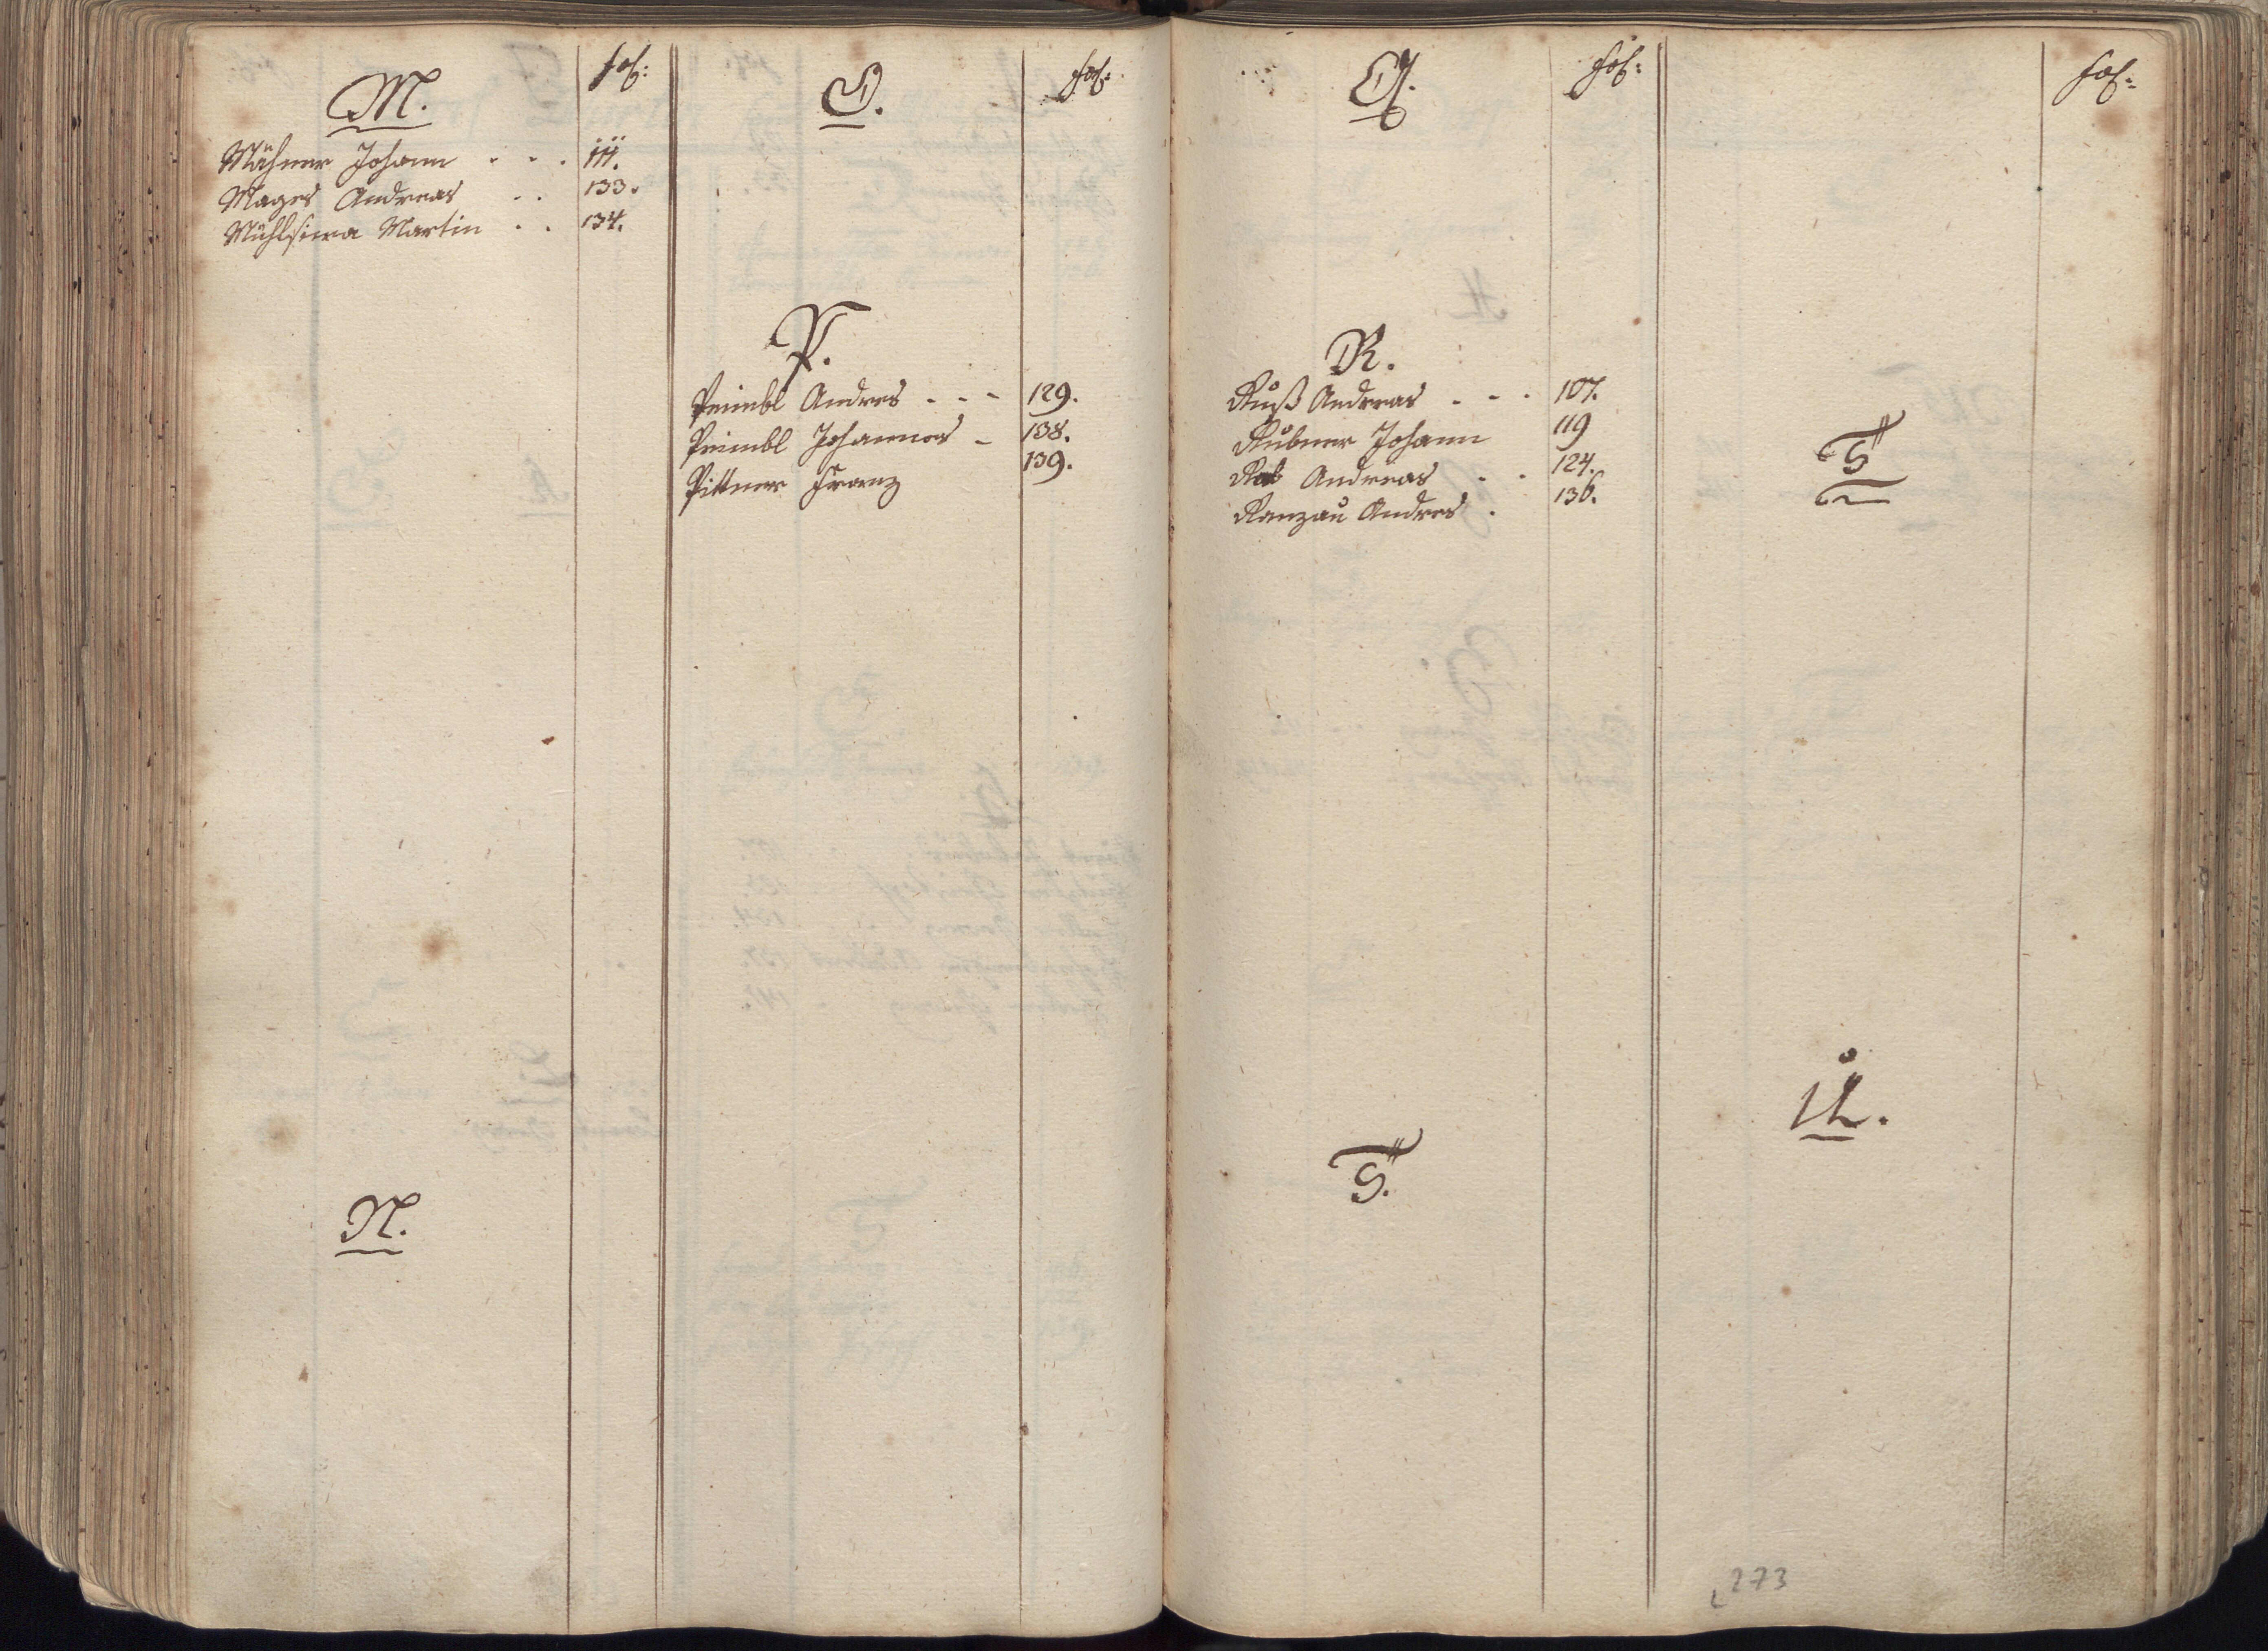 M.
fol:
Mähner Johann - - . 111.
Mages Andreas . . 133.
Mühlsiera Martin . . 134.
N.
O.
fol:
P.
Peimbl Andres - - - 129.
Peimbl Johannes - 138.
Pittner Frantz 139.
Q.
fol:
R.
Ruß Andreas - - . 107.
Rubner Johann 119
Andreas . . 124.
Ranzau Andres . 136.
S.
fol:
T
U.
273